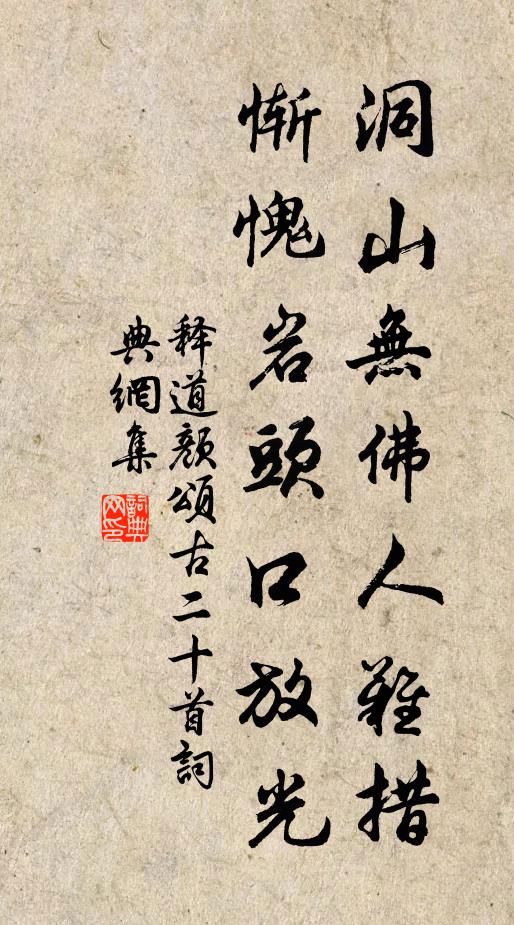 洞山無佛人難措
慚愧岩頭口放光
释道颜頌古二十首詞
典網集
詞典網印